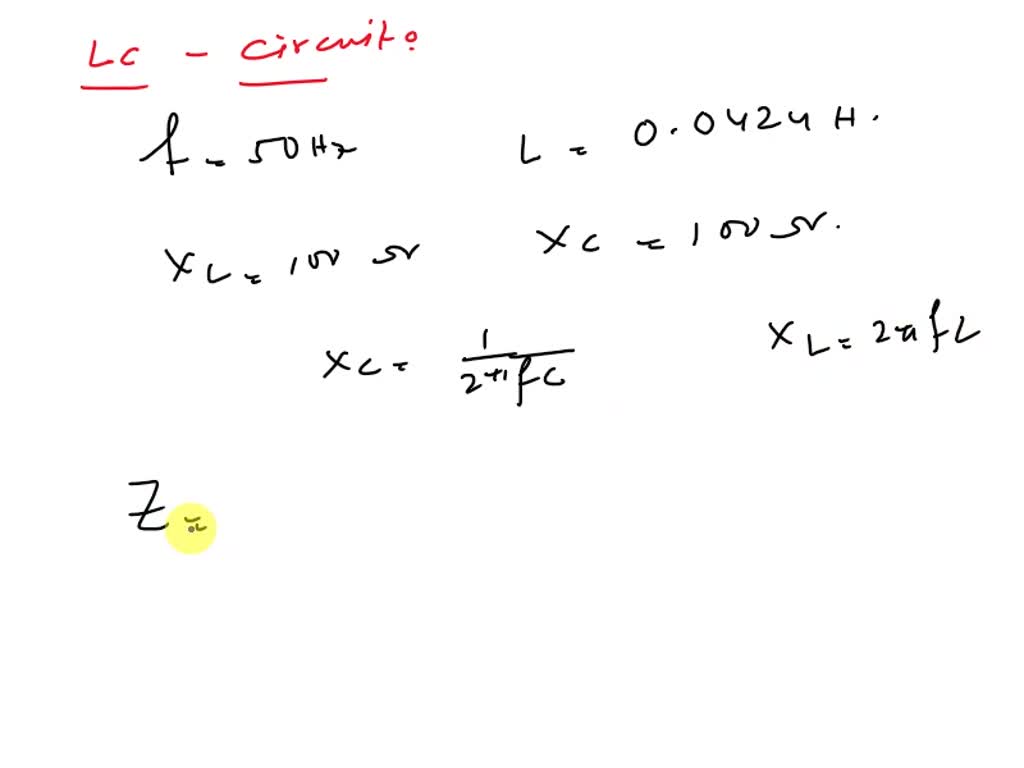 LC - Circuit:
f = 50 Hz L = 0.0424 H.
XL = 100 Ω XC = 100 Ω.
XC = 1/2πfC XL = 2πfL
Z =